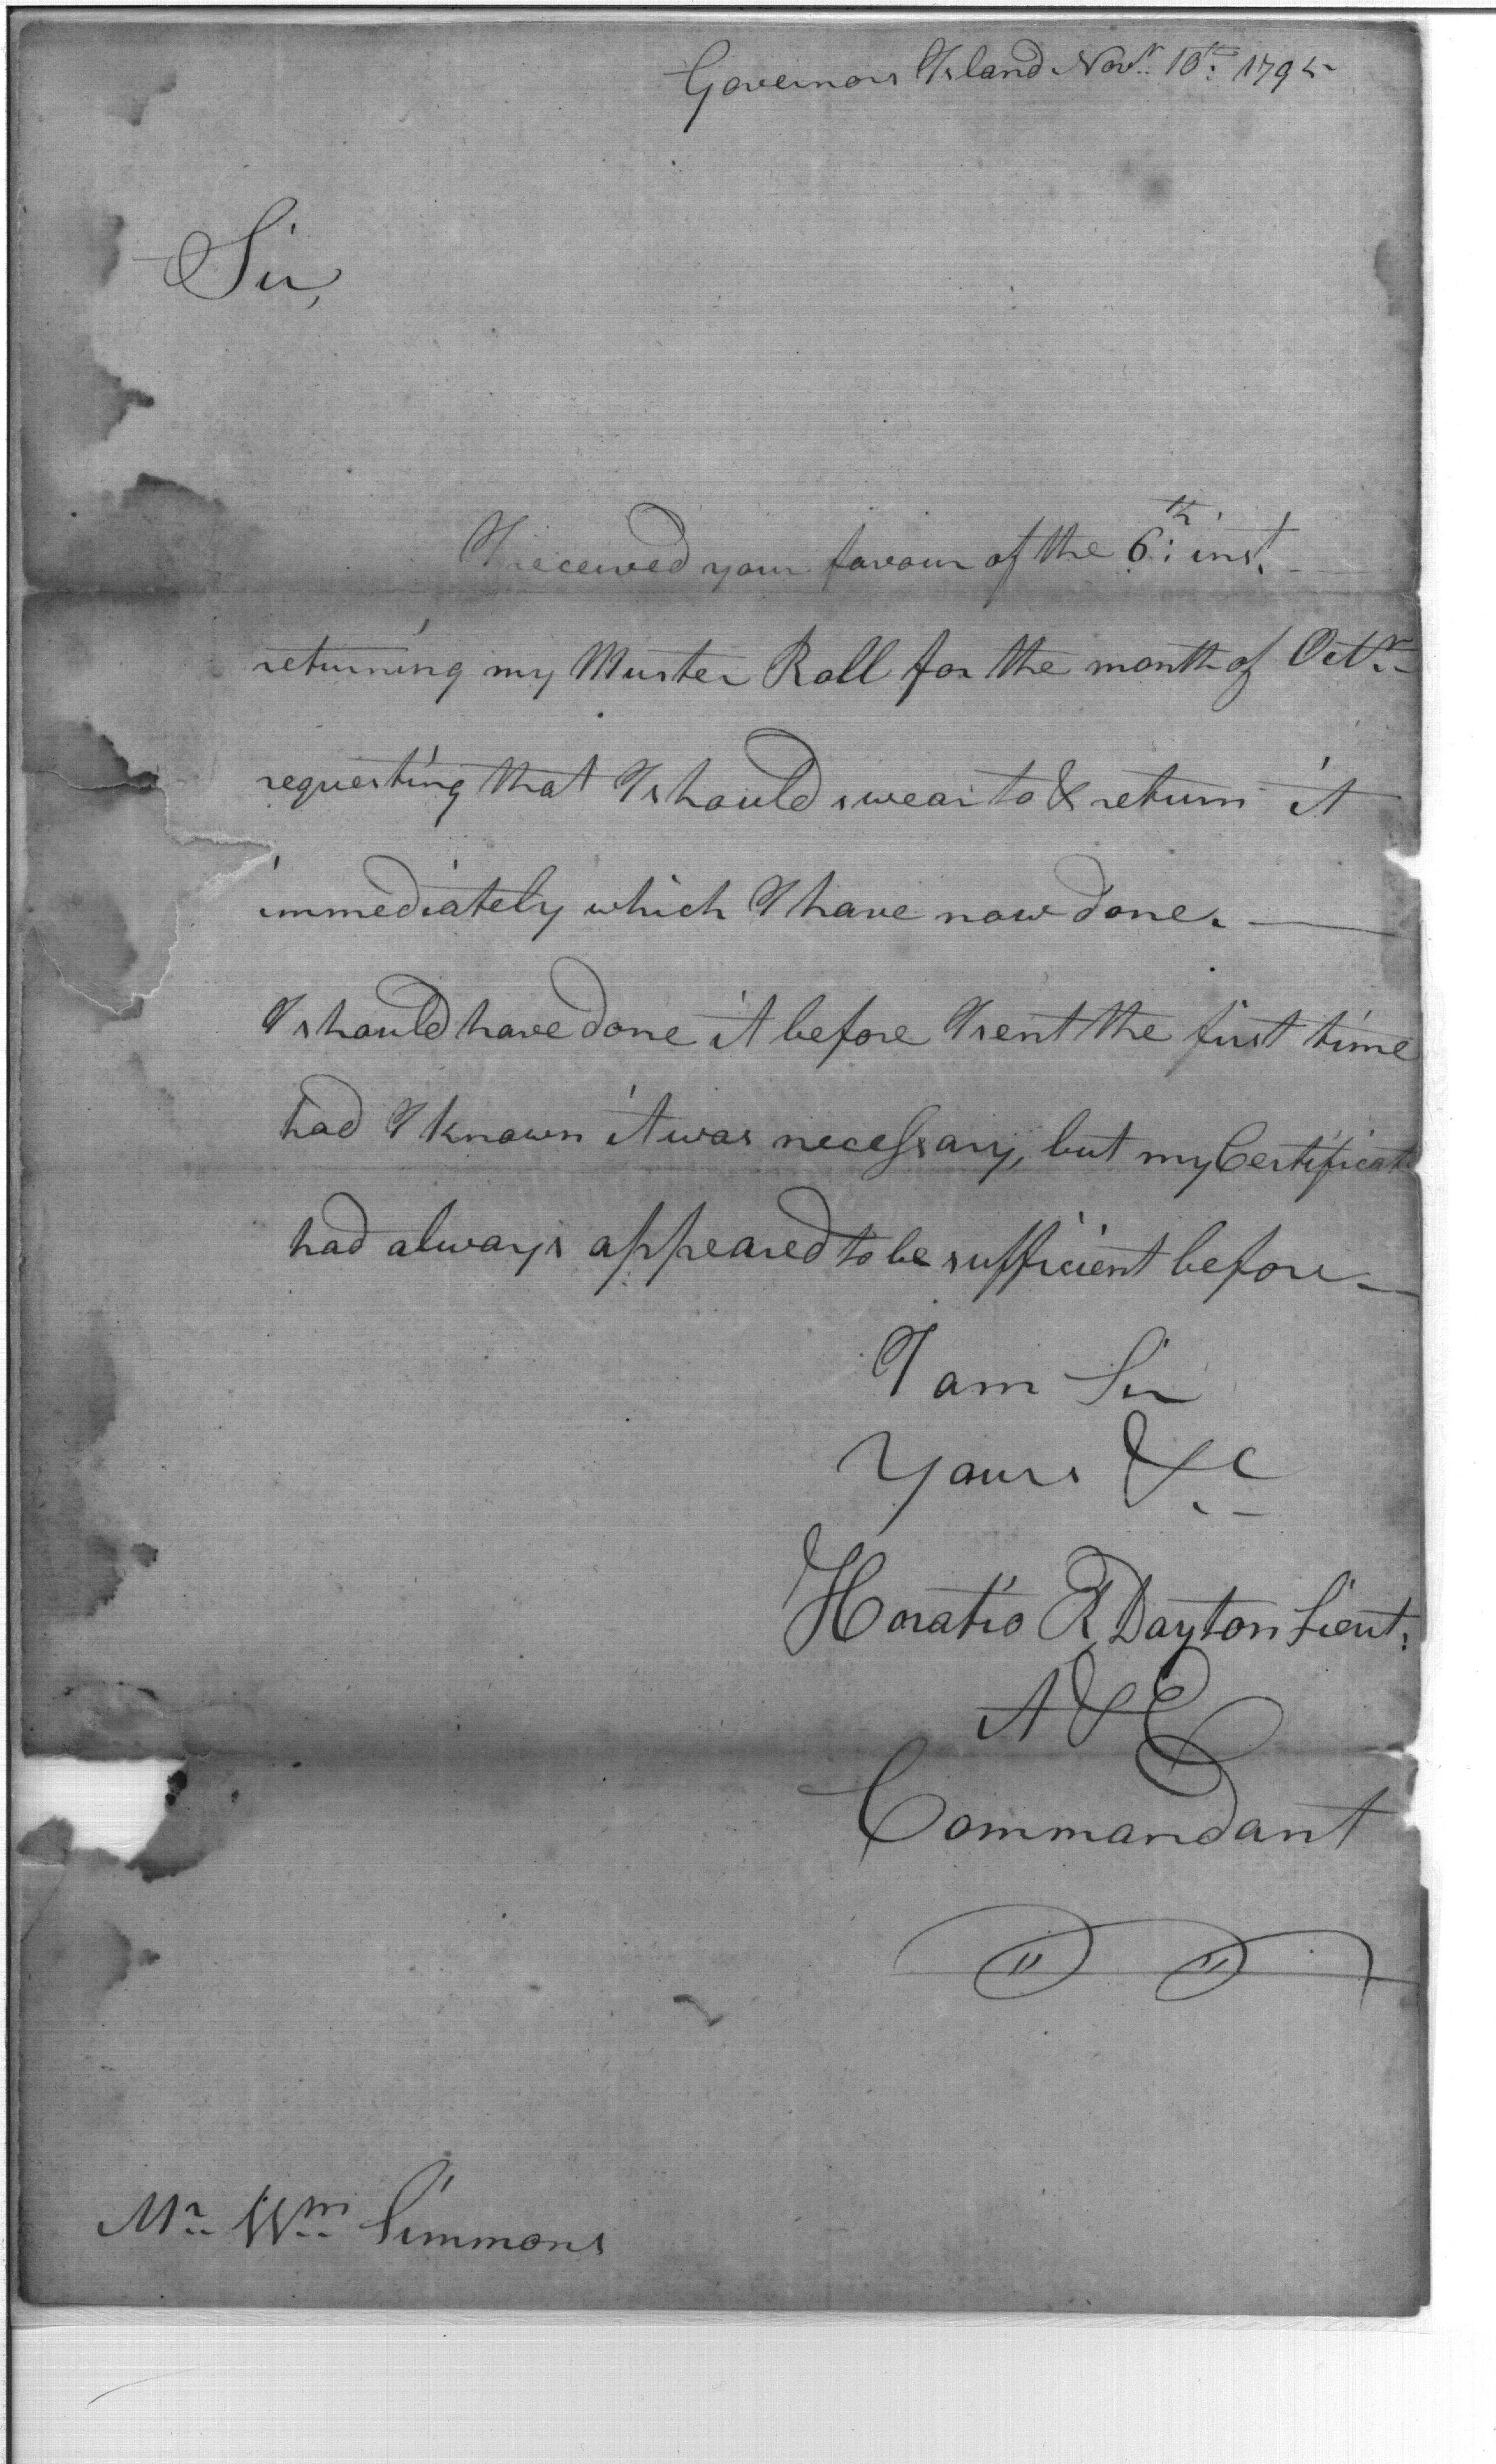 Governors Island Novr. 10th: 1795
Sir,
I received your favour of the 6th: inst.
returning my Muster Roll for the month of Octr.
requesting that I should swear to & return it
immediately which I have now done.
I should have done it before I sent the first time
had I known it was necessary, but my Certificate
had always appeared to be sufficient before
I am Sir
Yours &c
Horatio R Dayton Lieut.
A & E
Commandant
Mr. Wm. Simmons